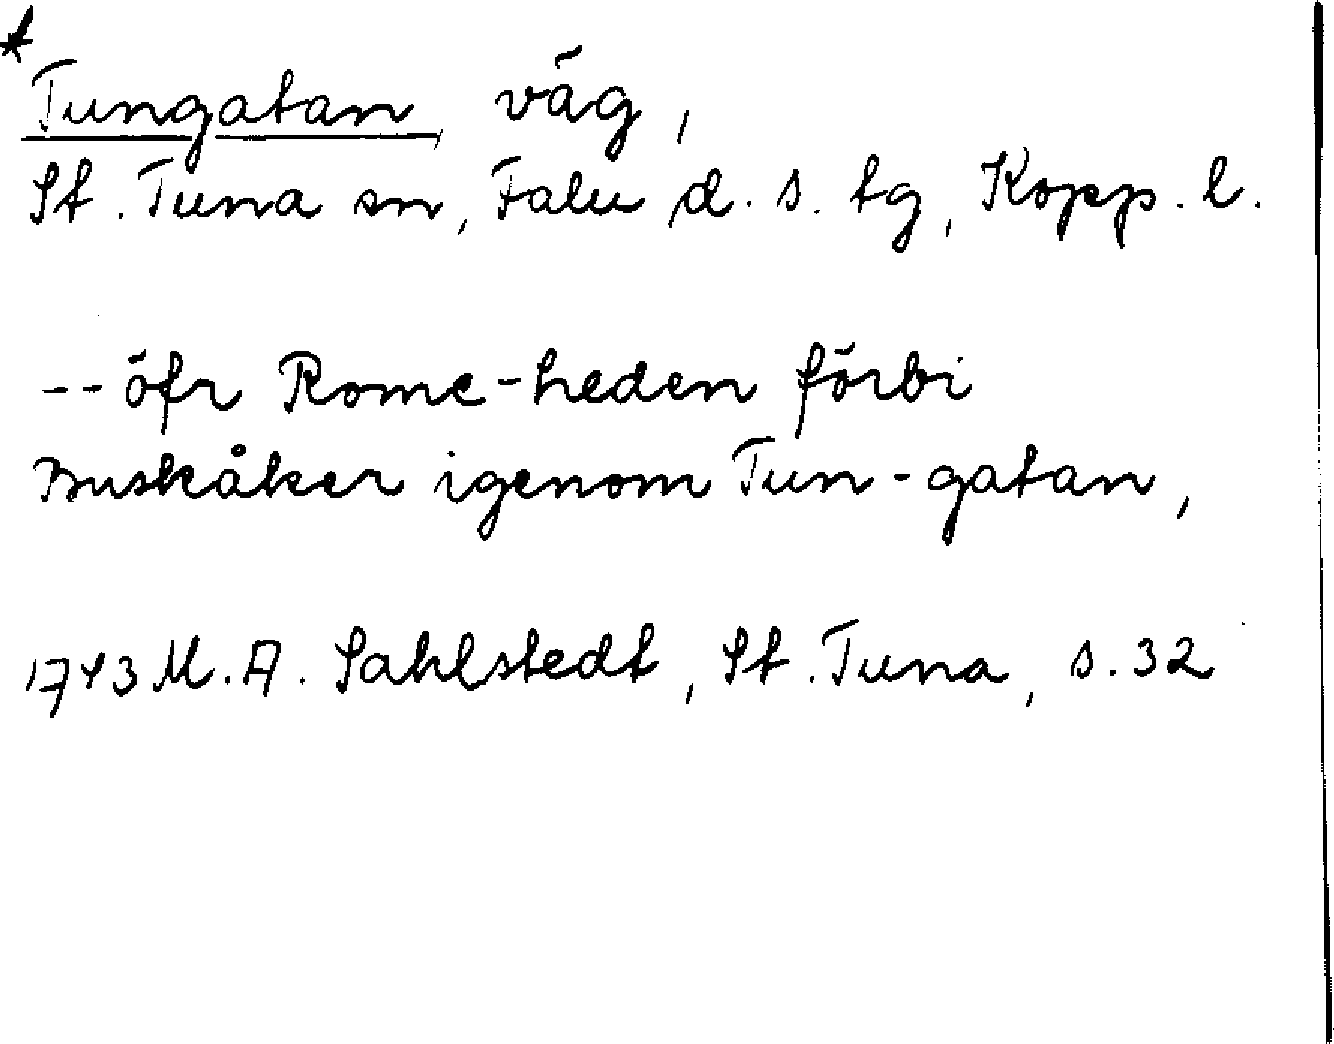 * Tungatan, väg,
St. Tuna sn, Falu d. s. tg, Kopp. l.
-- öfr Rome-heden förbi
Buskåker igenom Tun-gatan,
1743 M. A. Sahlstedt, St. Tuna, s. 32